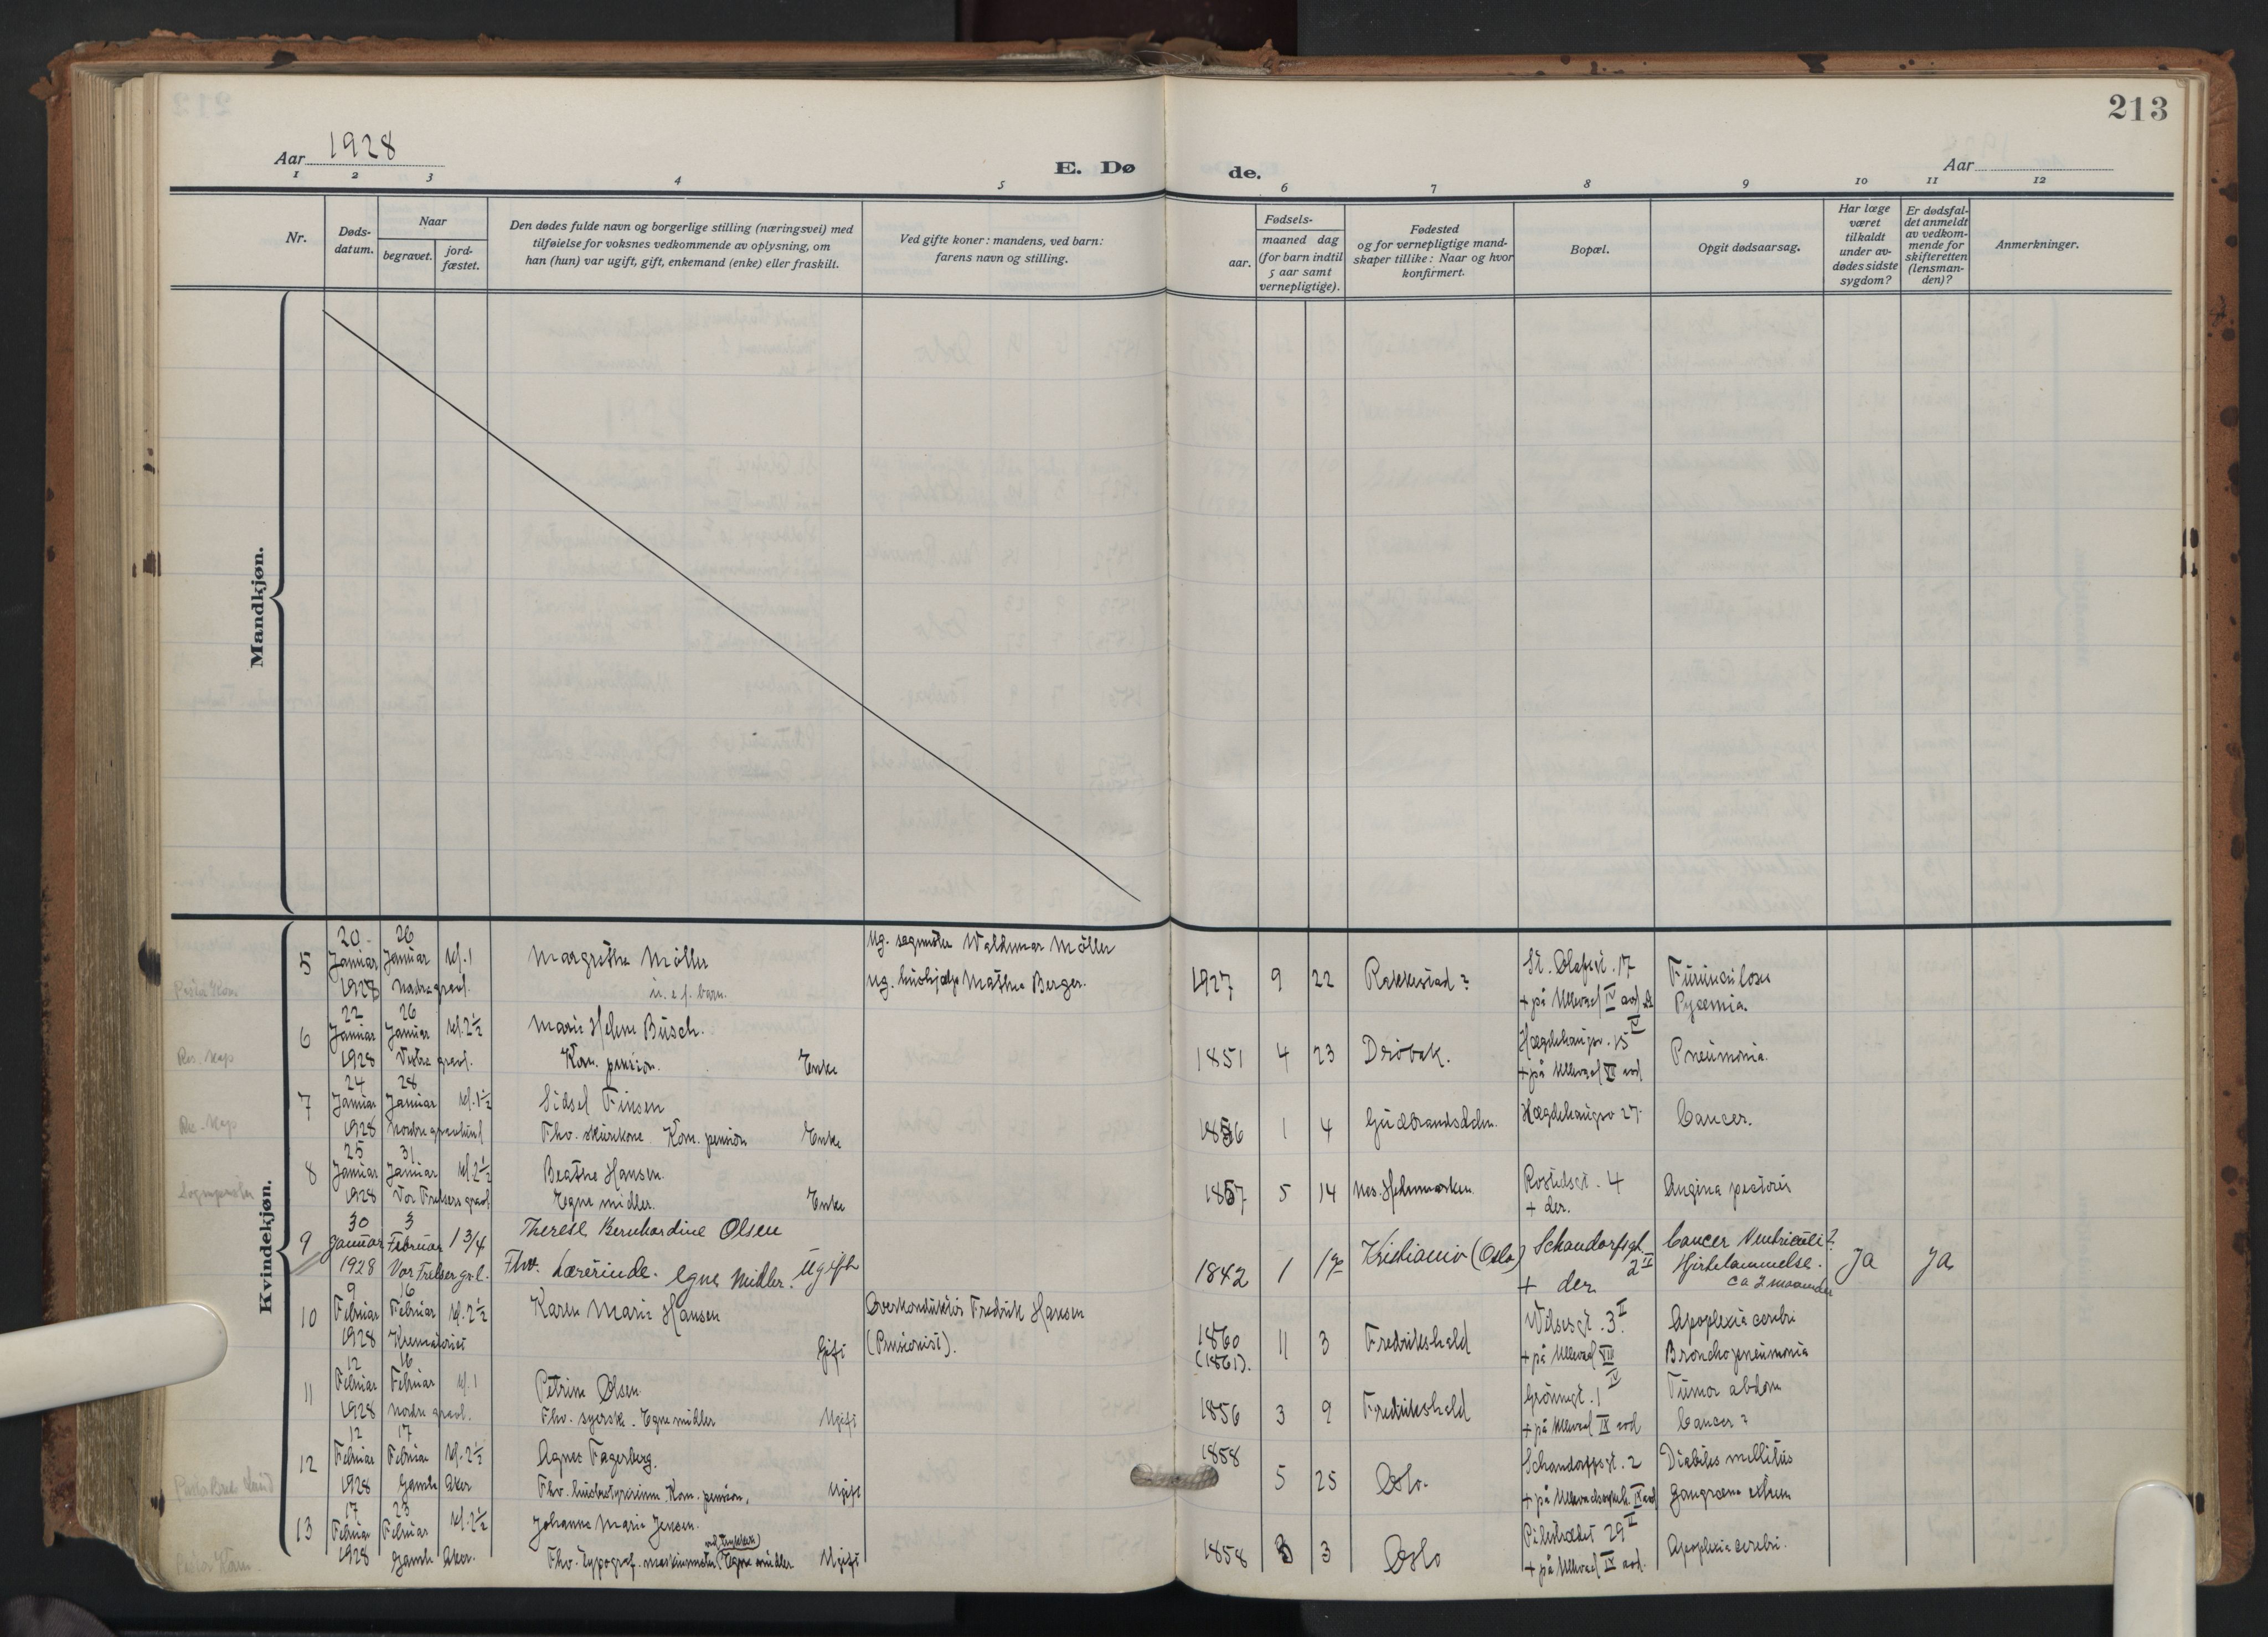 213
Aar 1928
E. Dø de.
Aar
1 2 3 4 5 6 7 8 9 10 11 12
Nr.
Døds-
datum.
Naar
begravet.
jord-
fæstet.
Den dødes fulde navn og borgerlige stilling (næringsvei) med
tilføielse for voksnes vedkommende av oplysning, om
han (hun) var ugift, gift, enkemand (enke) eller fraskilt.
Ved gifte koner: mandens, ved barn:
farens navn og stilling.
Fødsels-
aar.
maaned dag
(for barn indtil
5 aar samt
vernepligtige).
Fødested
og for vernepligtige mand-
skaper tillike: Naar og hvor
konfirmert.
Bopæl.
Opgit dødsaarsag.
Har læge
været
tilkaldt
under av-
dødes sidste
sygdom?
Er dødsfal-
det anmeldt
av vedkom-
mende for
skifteretten
(lensman-
den)?
Anmerkninger.
Mandkjøn.
Kvindekjøn.
5
20 Januar 1928
26 Januar kl. 1
Nordre gravl.
Margrethe Møller
u. e. f. barn.
Ug. Waldemar Møller
Ug. hushjelp Mathea Berger.
1927 9 22
Rakkestad?
St. Olafsgt. 17
+ på Ullevaal IV avd.
Furunculose
Pyæmia.
Res. Kap
6
22 Januar 1928
26 Januar kl. 2½
Vestre gravl.
Marie Helene Busch.
Kom. pension. Enke
1851 4 23
Drøbak.
Hægdehaugsv. 15 IV
+ på Ullevaal VI avd
Pneumonia.
Res. Kap
7
24 Januar 1928
28 Januar kl. 1½
Nordre gravlund
Sidsel Finsen
Fhv. skurekone Kom. pension Enke
1856 1 4
Gudbrandsdalen.
Hægdehaugsv 27.
Cancer.
Sogneprester
8
25 Januar 1928
31 Januar kl. 2½
Vor Frelsers gravl
Beathe Hansen.
Egne midler. Enke
1857 5 14
Nes. Hedemarken.
Rostedsgt. 4
+ der.
Angina pectoris
9
30 Januar 1928
3 Februar 1 3/4
Vor Frelser gr.l.
Therese Bernhardine Olsen
Fhv. Lærerinde. Egne Midler. Ugift
1842 1 17
Kristiania (Oslo)
Schandorfsgt. 2 II
+ der
Cancer Ventriculi?
Hjertelammelse.
ca 2 maaneder
Ja
Ja
10
9 Februar 1928
16 Februar kl. 2½
Krematoriet
Karen Marie Hansen
Gift
Overkonduktør Fredrik Hansen
(Pensionist).
1860
(1861).
11 3
Fredrikshald
Wilsesgt. 3 II
+ på Ullevaal VII
Apoplexia cerebri
Bronchopneumonia
11
12 Februar 1928
16 Februar kl. 1
Nordre gravl.
Petrine Olsen.
Fhv. syerske. Egne midler Ugift
1856 3 9
Fredrikshald
Grønnegt. 1 IV
+ på Ullevaal IX avd
Tumor abdom
Cancer?
12
12 Februar 1928
17 Februar kl. 2½
Gamle Aker
Agnes Fagerberg.
Fhv. husbestyrerinne Kom. pension, Ugift
1858
5 25
Oslo.
Schandorffsgt. 2
+ på Ullevaal IX avd
Diabetes mellitus
Gangræna
13
17 Februar 1928
23 Februar kl. 2½
Gamle Aker.
Johanne Marie Jensen.
Fhv. typograf. Egne midler Ugift
1858 3 3
Oslo
Pilestrædet 29 II
+ på Ullevaal IX avd.
Apoplexia cerebri.